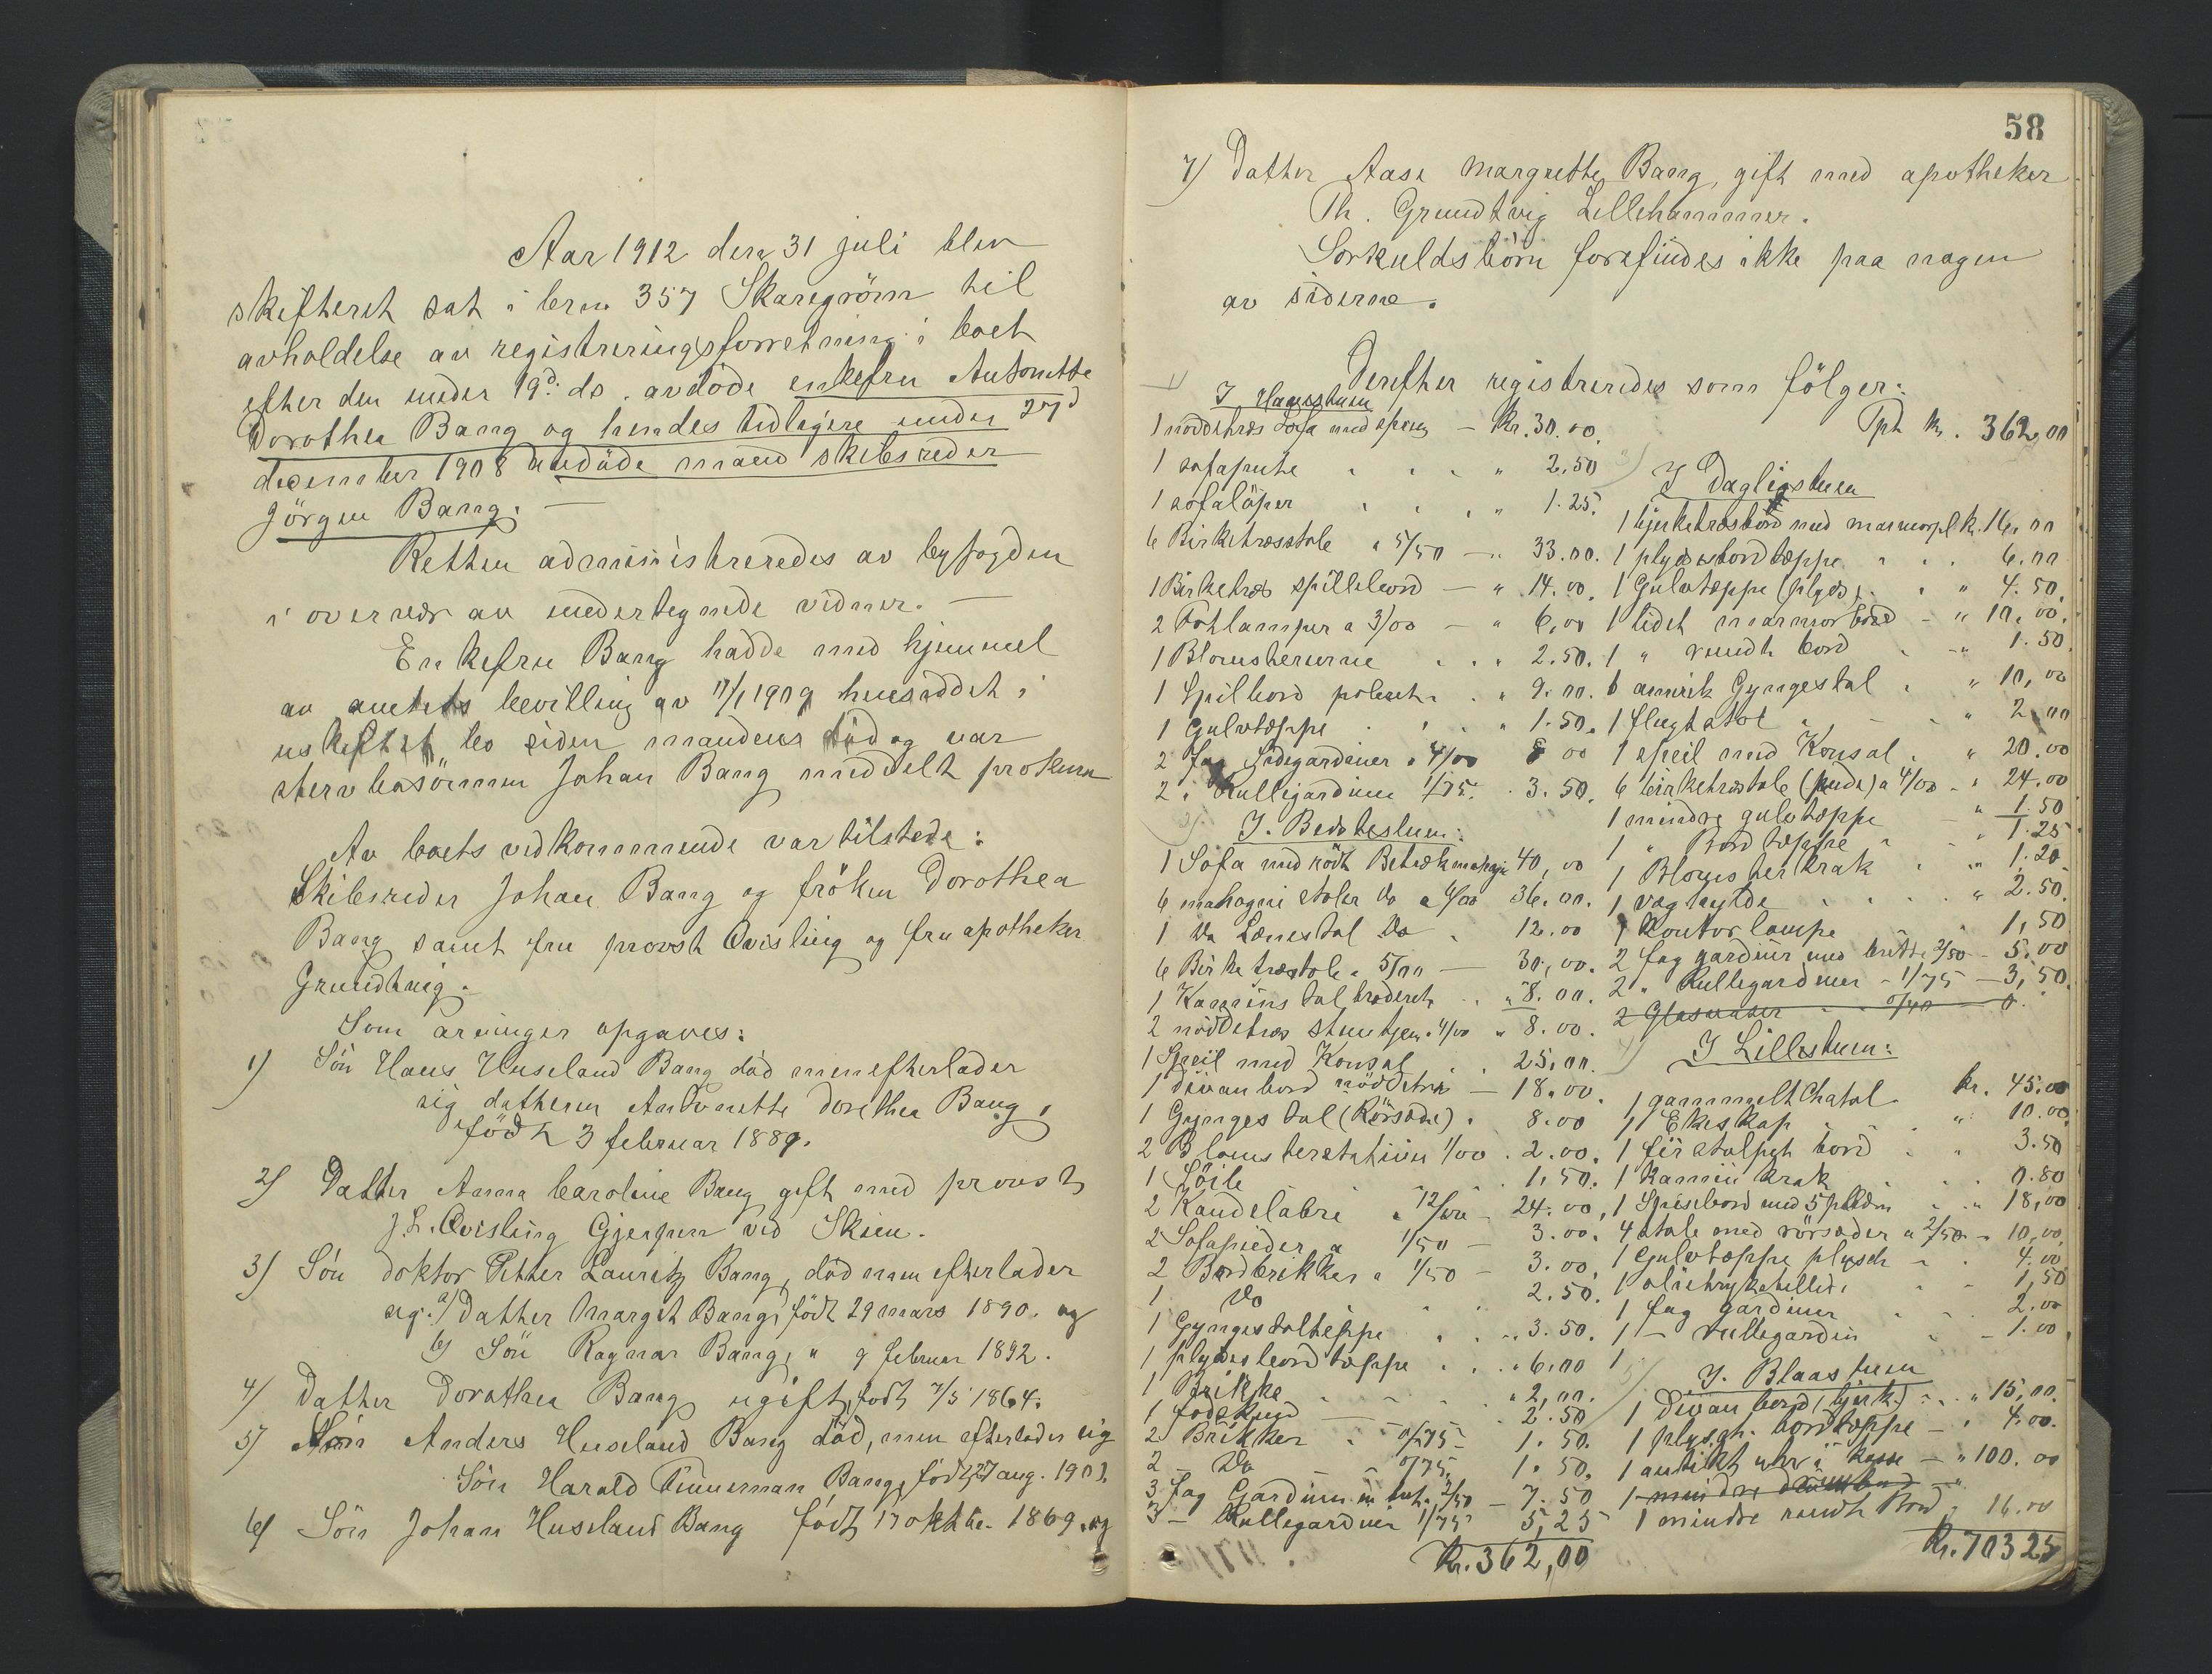 Aar 1912 den 31 juli blev
skifteret sat i brn. 357 Skaregröm til
avholdelse av registreringsforretning i boet
efter den under 19d. ds. avdöde enkefru Antonette
Dorothea Bang og hendes tidligere under 27d
december 1908 avdöde mand skibsreder
Jörgen Bang. —
Retten administreredes av byfogden
i overvær av undertegnede vidner. —
Enkefru Bang hadde med hjemmel
av amtets bevilling av 11/1 1909 hensiddet i
uskiftet bo siden mandens död og var
stervbosönnen Johan Bang meddelt prokura
Av boets vedkommende var tilstede:
Skibsreder Johan Bang og fröken Dorothea
Bang samt fru provst Qvisling og fru apotheker
Grundtvig.
Som arvinger opgaves:
1) Sön Hans Huseland Bang död men efterlader
sig datteren Antonette Dorothea Bang,
född 3 februar 1889.
2) Datter Anna Caroline Bang gift med provst
J.L. Qvisling Gjerpen ved Skien.
3) Sön doktor Petter Lauritz Bang, död men efterlader
sig: a) Datter Margit Bang, född 29 mars 1890. og
b) Sön Ragnar Bang, " 9 februar 1892.
4) Datter Dorothea Bang ugift, född 7/5 1864.
5) Sön Anders Huseland Bang död, men efterlader sig
Sön Harald Timmerman Bang, född 27 aug. 1901.
6) Sön Johan Huseland Bang född 17 oktbr. 1869. og
58
7) Datter Aasa Margrethe Bang, gift med apotheker
Th. Grundtvig Lillehammer.
Særkuldsbörn forefindes ikke paa nogen
av siderne.
Derefter registreredes som fölger:
1) I Havestuen
1 nöddetræs Sofa med — Kr. 30.00.
1 sofapute " 2.50
1 sofalöper " 1.25.
6 Birketræsstole a 5/50 — " 33.00.
1 Birketræs spillebord — " 14.00.
2 Fotlamper a 3/00 — " 6,00
1 Blomsterurne " 2.50.
1 Spilbord poleret " 9.00.
1 Gulvtæppe " 1.50.
2 fag Sidegardiner a 4/00 8 00
2 " Rullegardiner 1/75. 3.50.
2) I. Bedstestuen:
1 Sofa med rödt Betræk mahogni 40,00
6 mahogni stoler do a 6/00 36.00.
1 do Lænestol do 12.00
6 Birketræstole a 5/00 — 30,00.
1 Kaminstol broderet " 8.00.
2 nöddetræs stenhjem. 4/00 " 8.00.
1 Speil med Konsol 25,00.
1 divanbord nöddetræ — 18.00.
1 Gyngestol (Rörsæde) 8.00
2 Blomsterstativer 1/00 2.00.
1 Söile 1,50.
2 Kandelabre a 12/00 — 24.00,
2 Sofaputer a 1/50 — 3.00.
2 Bordbrikker a 1/50 — 3.00,
1 do 2.50.
1 Gyngestolteppe 3.50.
1 plydsbordtæppe " 6.00
1 Brikke " 2,00.
1 fodskind — " 2.50
2 Brikker 0/75 1.50.
2 — do 0/75. 1.50.
3 fag Gardiner m. bret. 2/50 — 7.50
3 — Rullegardiner 1/75 5,25
Kr. 362,00
Tpt Kr. 362,00
3) I Dagligstuen
1 bjerketræsbord med marmorpl. k. 16,00
1 plydsbordtæppe " 6.00
1 Gulvtæppe (plyds) " 4.50.
1 lidet marmorbord — " 10,00.
1 " rundt bord — " 1.50.
1 amrik Gyngestol " 10,00
1 flugtstol — " 2,00
1 speil med Konsol " 20.00
6 birketræstole (pude) a 4/00 — " 24.00
1 mindre gulvtæppe " 1.50
1 " Bordtæppe " 1.25
1 Blomsterkrak " 1.20
1 væghylde " 2.50.
1 Kontorlampe 1,50
2 fag gardiner med brett. 2/50 — 5.00
2 " Rullegardiner — 1/75 — 3,50.
2 Glasvaser 0/40 — 0.
4) I Lillestuen:
1 gammelt Chatol kr. 45.00
1 Ekeskap " 10.00
1 firstolpet bord 3.50
1 Kamin krak 0.80
1 Spisebord med 5 plader " 18,00
4 stole med rörsæder a 2/50 — 10,00
1 Gulvtæppe plysch " 4.00
1 oljetrykbillede 1,50
1 fag gardiner 2.00
1 — rullegardin — 1.00
1
5) I. Blaastuen
1 Divanbord (bjerk.) " 15,00.
1 plysch. bordtæppe — 4.00.
1 antikt uhr i kasse — " 100.00
1 mindre
1 mindre rundt Bord 16.00
Kr. 703 25